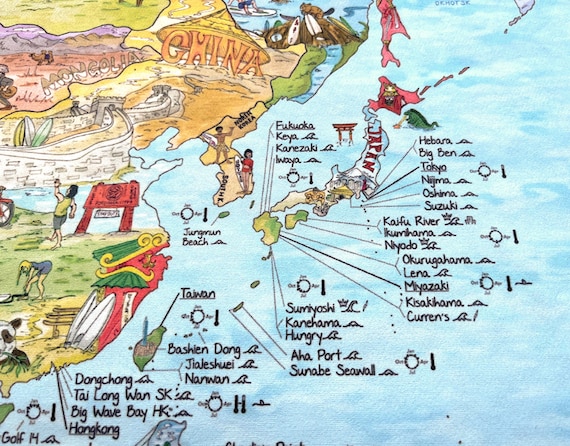 OKHOTSK
CHINA
MONGOLIA
NORTH
KOREA
SOUTH K.
JAPAN
Fukuoka
Keya
Kanezaki
Iwaya
Hebara
Big Ben
Tokyo
Niijma
Oshima
Suzuki
Kaifu River
Ikumihama
Niyodo
Okurugahama
Lena
Miyazaki
Kisakihama
Curren's
Jungmun
Beach
Sumiyoshi
Kanehama
Hungry
Aha Port
Sunabe Seawall
Taiwan
Bashien Dong
Jialeshuei
Nanwan
Dongchong
Tai Long Wan SK
Big Wave Bay HK
Hongkong
Golf 14